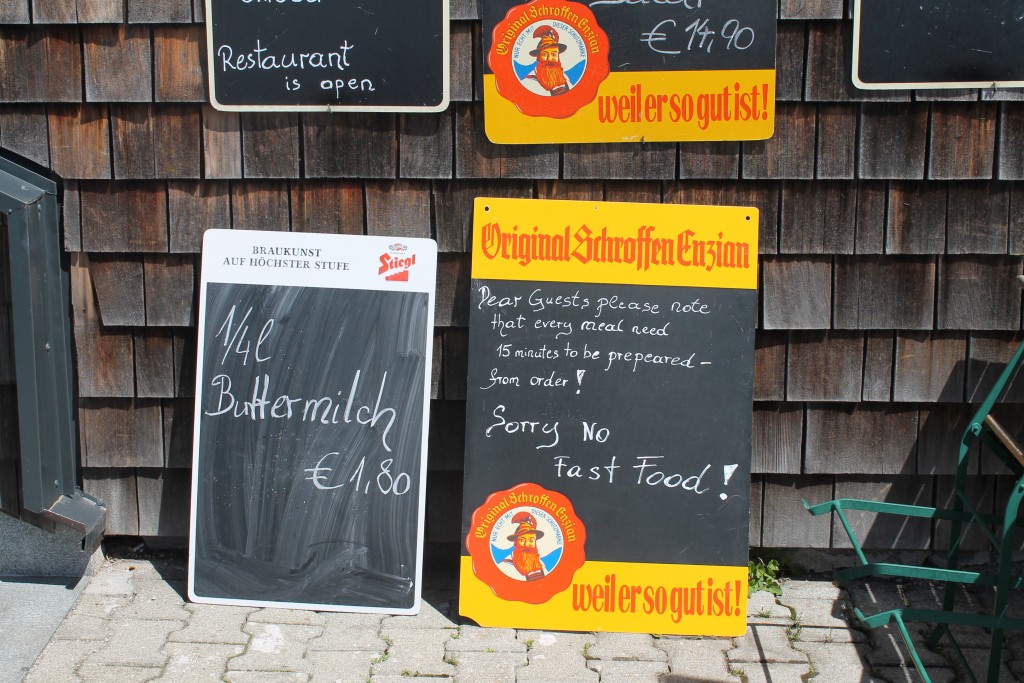 Restaurant
is open
€ 14,90
Original Schroffen Enzian
NUR ECHT MIT DIESER SCHUTZMARKE
weil er so gut ist!
BRAUKUNST
AUF HÖCHSTER STUFE
Stiegl
1/4l
Buttermilch
€ 1,80
Original Schroffen Enzian
Dear Guests please note
that every meal need
15 minutes to be prepeared –
from order!
Sorry No
Fast Food!
Original Schroffen Enzian
NUR ECHT MIT DIESER SCHUTZMARKE
weil er so gut ist!